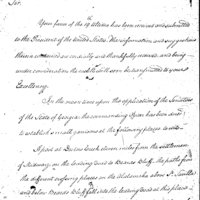 Sir.
Your favor of the 19 Ultimo has been received and submitted
to the President of the United States. The information and suggestions
therein contained are candidly and thankfully received, and being
under consideration the result will soon be transmitted to your
Excellency.
In the mean time upon the application of the Senators
of the State of Georgia the commanding officer has been directed
to establish small garrisons at the following places to wit
A post at Doctors Creek eleven miles from the settlement
of Midway, on the leading road to Beards Bluff, the paths from
the different crossing places on the Alatamaha above St. Savilla
and below Beards Bluff fall into the leading road at this place